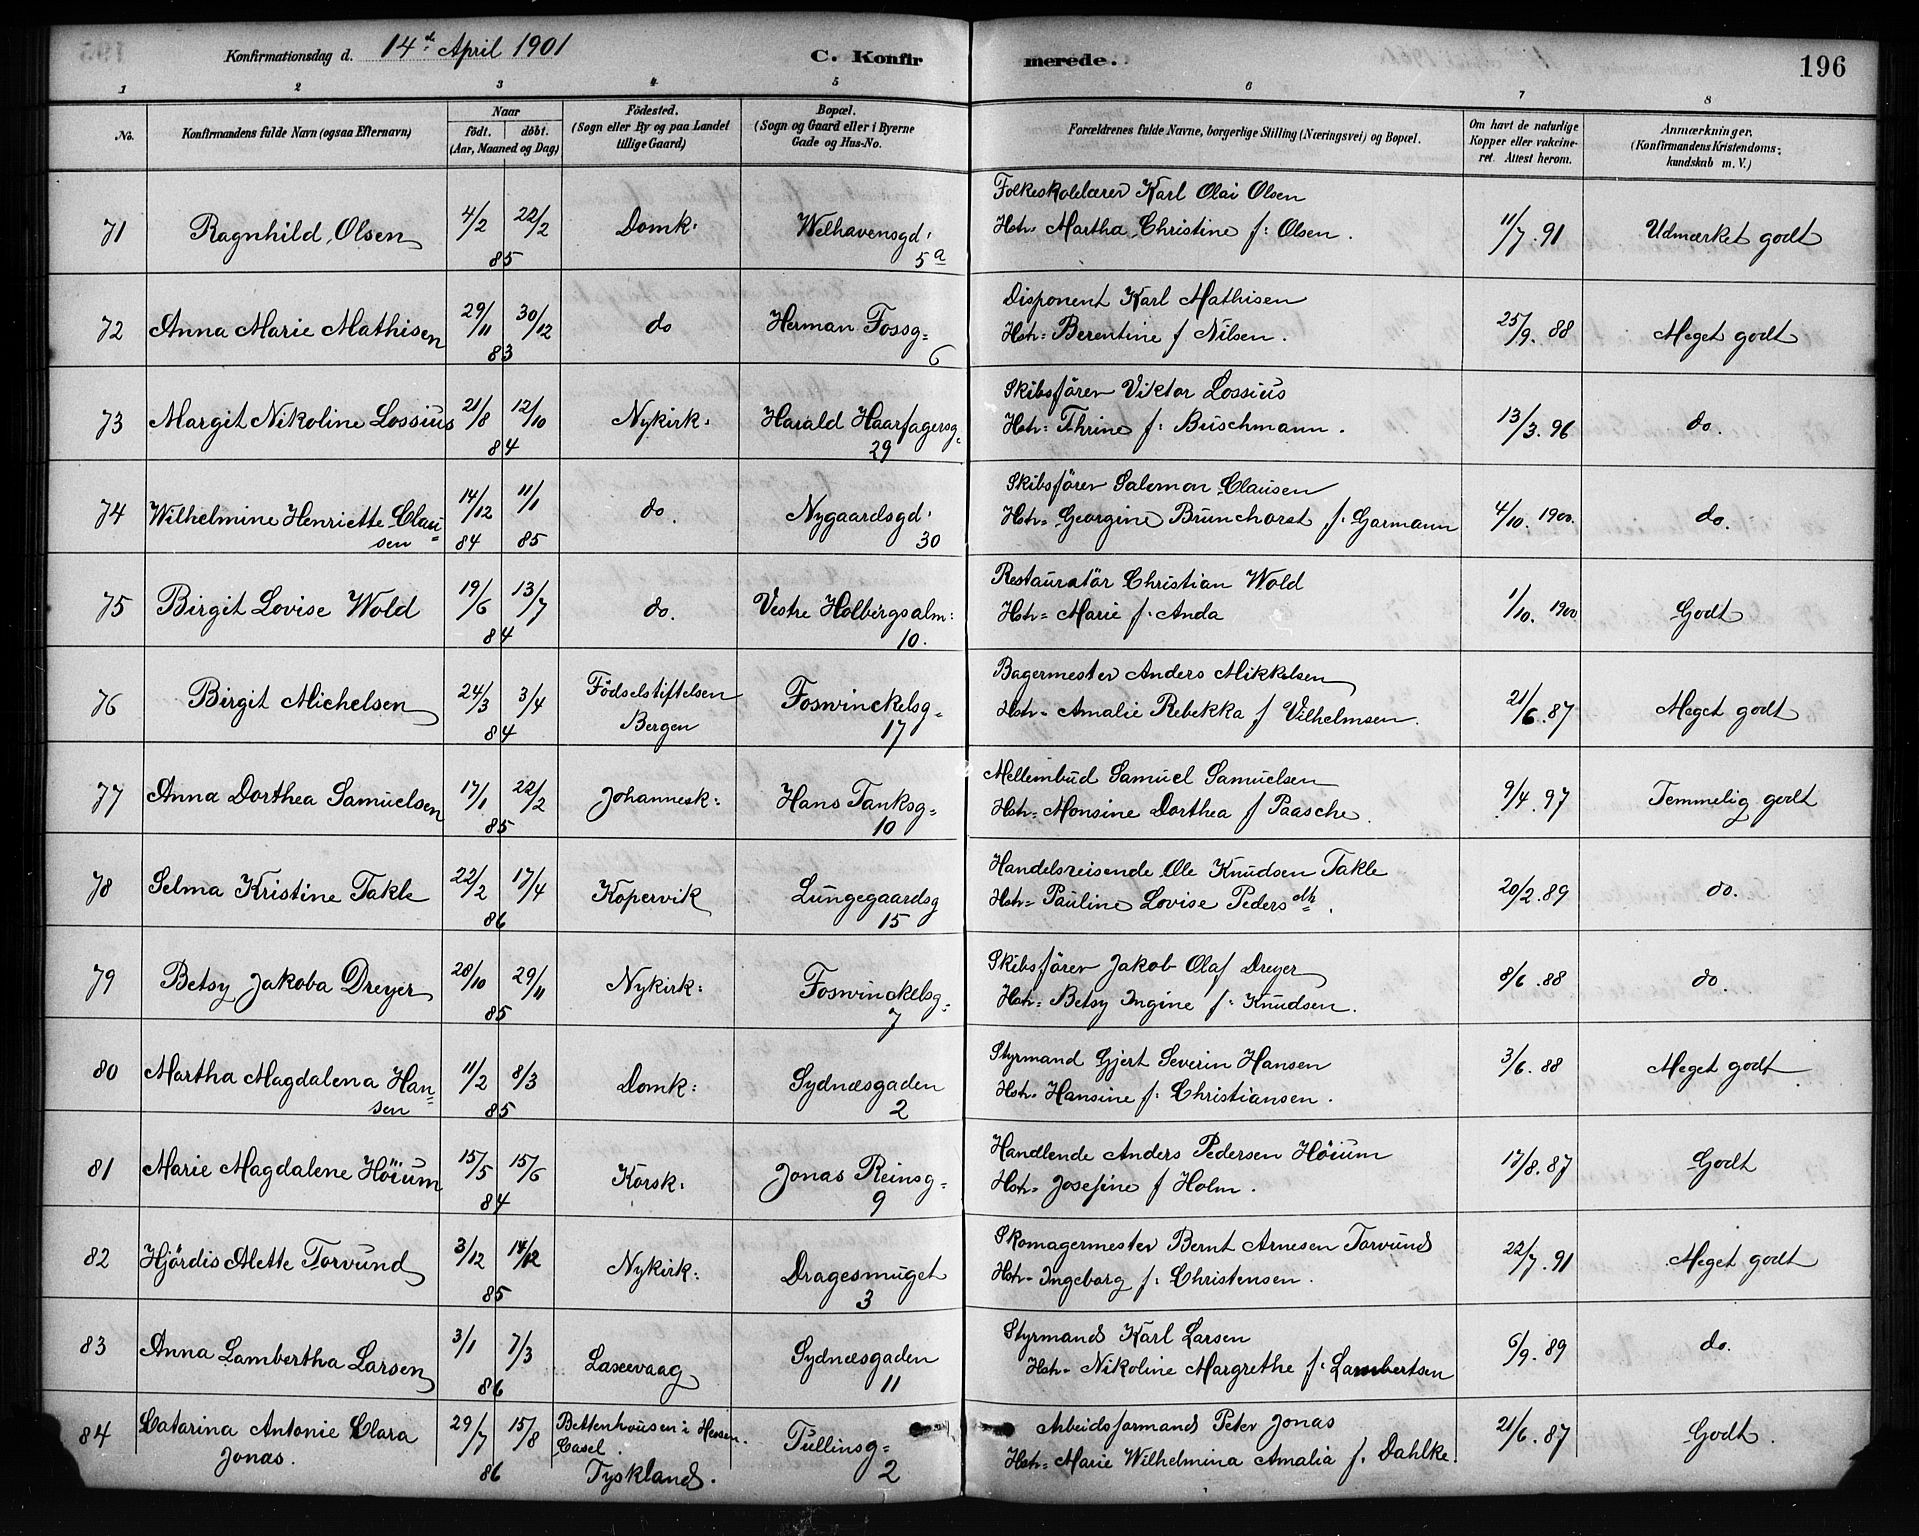 Konfirmationsdag d. 14de April 1901
C. Konfirmerede.
196
1 2 3 4 5 6 7 8
No.
Konfirmandens fulde Navn (ogsaa Efternavn)
Naar
födt. döbt.
(Aar, Maaned og Dag)
Födested.
(Sogn eller By og paa Landet
tillige Gaard)
Bopæl.
(Sogn og Gaard eller i Byerne
Gade og Hus-No.
Forældrenes fulde Navne, borgerlige Stilling (Næringsvei) og Bopæl.
Om havt de naturlige
Kopper eller vakcine-
ret. Attest herom.
Anmærkninger.
(Konfirmandens Kristendoms-
kundskab m. V.)
71 Ragnhild Olsen 4/2 22/2 85 Domk: Welhavensgd: 5a
Folkeskolelærer Karl Olai Olsen
Hstr= Martha Christine f: Olsen. 11/7. 91 Udmærket godt
72 Anna Marie Mathisen 29/11 30/12 83 do Herman Fossg= 6
Disponent Karl Mathisen
Hstr= Berentine f Nilsen. 25/9. 88 Meget godt
73 Margit Nikoline Lossius 21/8 12/10 84 Nykirk: Harald Haarfagersg= 29
Skibsförer Viktor Lossius
Hstr= Thrine f: Buschmann. 13/3. 96 do.
74 Wilhelmine Henriette Clau=
sen 14/12 84 11/1 85 do. Nygaardsgd: 30
Skibsförer Salomon Clausen
Hstr= Georgine Brunchorst f: Garmann 4/10. 1900. do.
75 Birgit Lovise Wold 19/6 13/7 84 do. Vestre Holbergsalm: 10.
Restauratör Christian Wold
Hstr= Marie f: Anda 1/10. 1900 Godt
76 Birgit Michelsen 24/3 3/4 84 Födselstiftelsen
Bergen Foswinckelsg= 17
Bagermester Anders Mikkelsen
Hstr= Amalie Rebekka f Vilhelmsen. 21/6. 87 Meget godt
77 Anna Dorthea Samuelsen 17/1 22/2 85 Johannesk: Hans Tanksg= 10
Mellembud Samuel Samuelsen
Hstr= Monsine Dorthea f Paasche. 9/4. 97 Temmelig godt
78 Selma Kristine Takle 22/2 17/4 86 Kopervik Lungegaardsg 15
Handelsreisende Ole Knudsen Takle
Hstr= Pauline Lovise Pedersdtr. 20/2. 89 do.
79 Betsy Jakoba Dreyer 28/10 29/11 85 Nykirk: Foswinckelsg= 7
Skibsförer Jakob Olaf Dreyer
Hstr= Betsy Ingine f: Knudsen. 8/6. 88 do.
80 Martha Magdalena Han=
sen 11/2 8/3 85 Domk: Sydnæsgaden 2
Styrmand Gjert Severin Hansen
Hstr= Hansine f: Christiansen. 3/6. 88 Meget godt
81 Marie Magdalene Höium 15/5 15/6 84 Korsk: Jonas Reinsg= 9
Handlende Anders Pedersen Höium
Hstr= Josefine f Holm. 17/8. 87 Godt
82 Hjördis Alette Torvund 3/12 14/12 85 Nykirk: Dragesmuget 3
Skomagermester Bernt Arnesen Torvund
Hstr= Ingeborg f: Christensen. 22/7. 91 Meget godt
83 Anna Lambertha Larsen 3/1 7/3 86 Laxevaag Sydnæsgaden 11
Styrmand Karl Larsen
Hstr= Nikoline Margrethe f: Lambertsen 6/9. 89 do.
84 Catarina Antonie Clara
Jonas. 29/7 15/8 86 Bettenhousen i Hessen.
Casel.
Tyskland. Tullinsg= 2
Arbeidsformand Peter Jonas
Hstr= Marie Wilhelmina Amalia f. Dahlke. 21/6. 87 Godt.